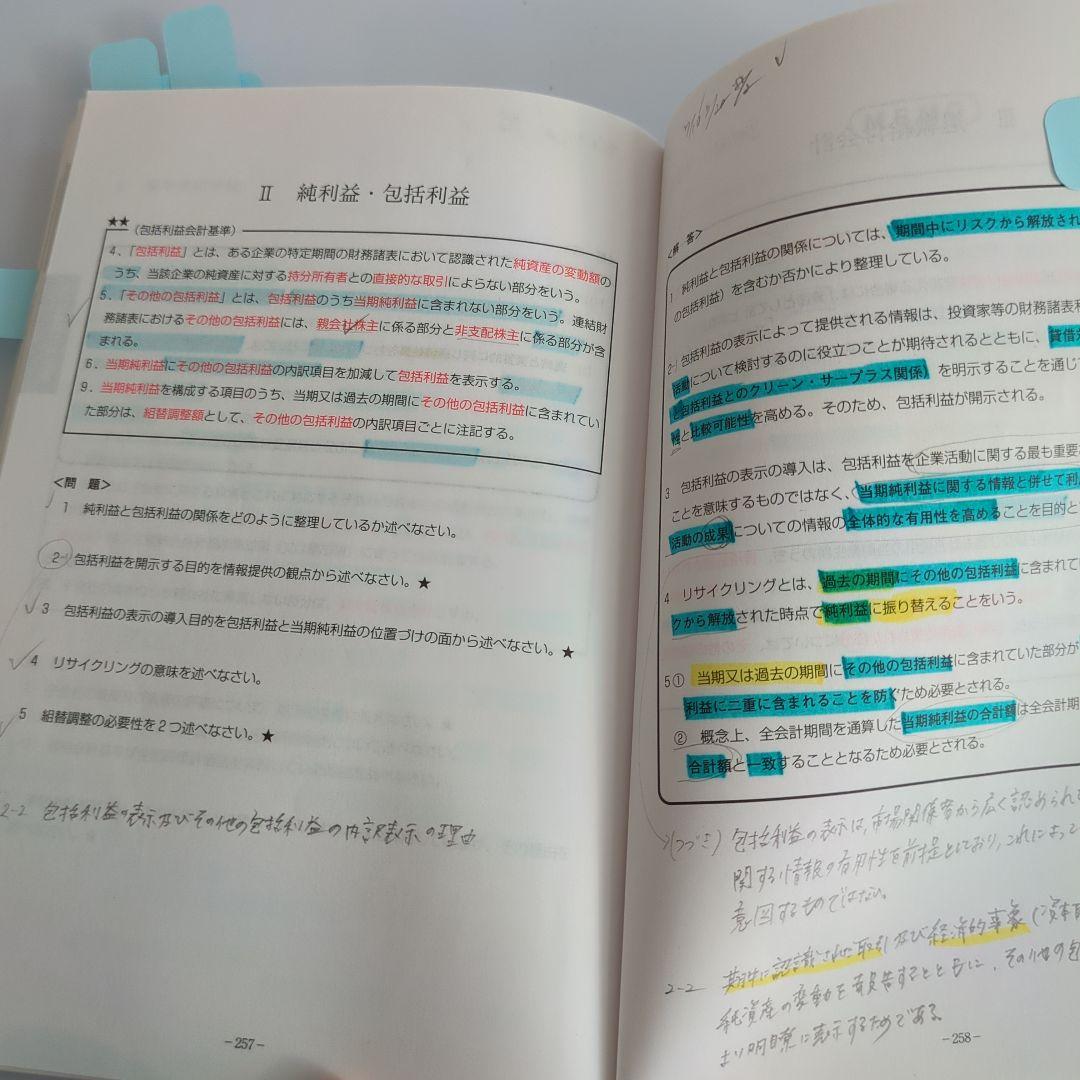 Ⅱ 純利益・包括利益
★★
(包括利益会計基準)
4.「包括利益」とは、ある企業の特定期間の財務諸表において認識された純資産の変動額の
うち、当該企業の純資産に対する持分所有者との直接的な取引によらない部分をいう。
5.「その他の包括利益」とは、包括利益のうち当期純利益に含まれない部分をいう。連結財
務諸表におけるその他の包括利益には、親会社株主に係る部分と非支配株主に係る部分が含
まれる。
6.当期純利益にその他の包括利益の内訳項目を加減して包括利益を表示する。
9.当期純利益を構成する項目のうち、当期又は過去の期間にその他の包括利益に含まれてい
た部分は、組替調整額として、その他の包括利益の内訳項目ごとに注記する。
<問 題>
1 純利益と包括利益の関係をどのように整理しているか述べなさい。
2-1 包括利益を開示する目的を情報提供の観点から述べなさい。★
3 包括利益の表示の導入目的を包括利益と当期純利益の位置づけの面から述べなさい。★
4 リサイクリングの意味を述べなさい。
5 組替調整の必要性を2つ述べなさい。★
2-2 包括利益の表示及びその他の包括利益の内訳表示の理由
-257-
<解 答>
1 純利益と包括利益の関係については、期間中にリスクから解放され
の包括利益)を含むか否かにより整理している。
2-1 包括利益の表示によって提供される情報は、投資家等の財務諸表利
活動について検討するのに役立つことが期待されるとともに、貸借対
と包括利益とのクリーン・サープラス関係)を明示することを通じ
性と比較可能性を高める。そのため、包括利益が開示される。
3 包括利益の表示の導入は、包括利益を企業活動に関する最も重要な
ことを意味するものではなく、当期純利益に関する情報と併せて利
活動の成果についての情報の全体的な有用性を高めることを目的と
4 リサイクリングとは、過去の期間にその他の包括利益に含まれて
クから解放された時点で純利益に振り替えることをいう。
5① 当期又は過去の期間にその他の包括利益に含まれていた部分が
利益に二重に含まれることを防ぐため必要とされる。
② 概念上、全会計期間を通算した当期純利益の合計額は全会計期
合計額と一致することとなるため必要とされる。
(つづき) 包括利益の表示は、市場関係者から広く認められ
関する情報の有用性を前提としており、これによって
意図するものではない。
2-2 期中に認識された取引及び経済的事象(資本
純資産の変動を報告するとともに、その他の包
より明瞭に表示するためである。
-258-